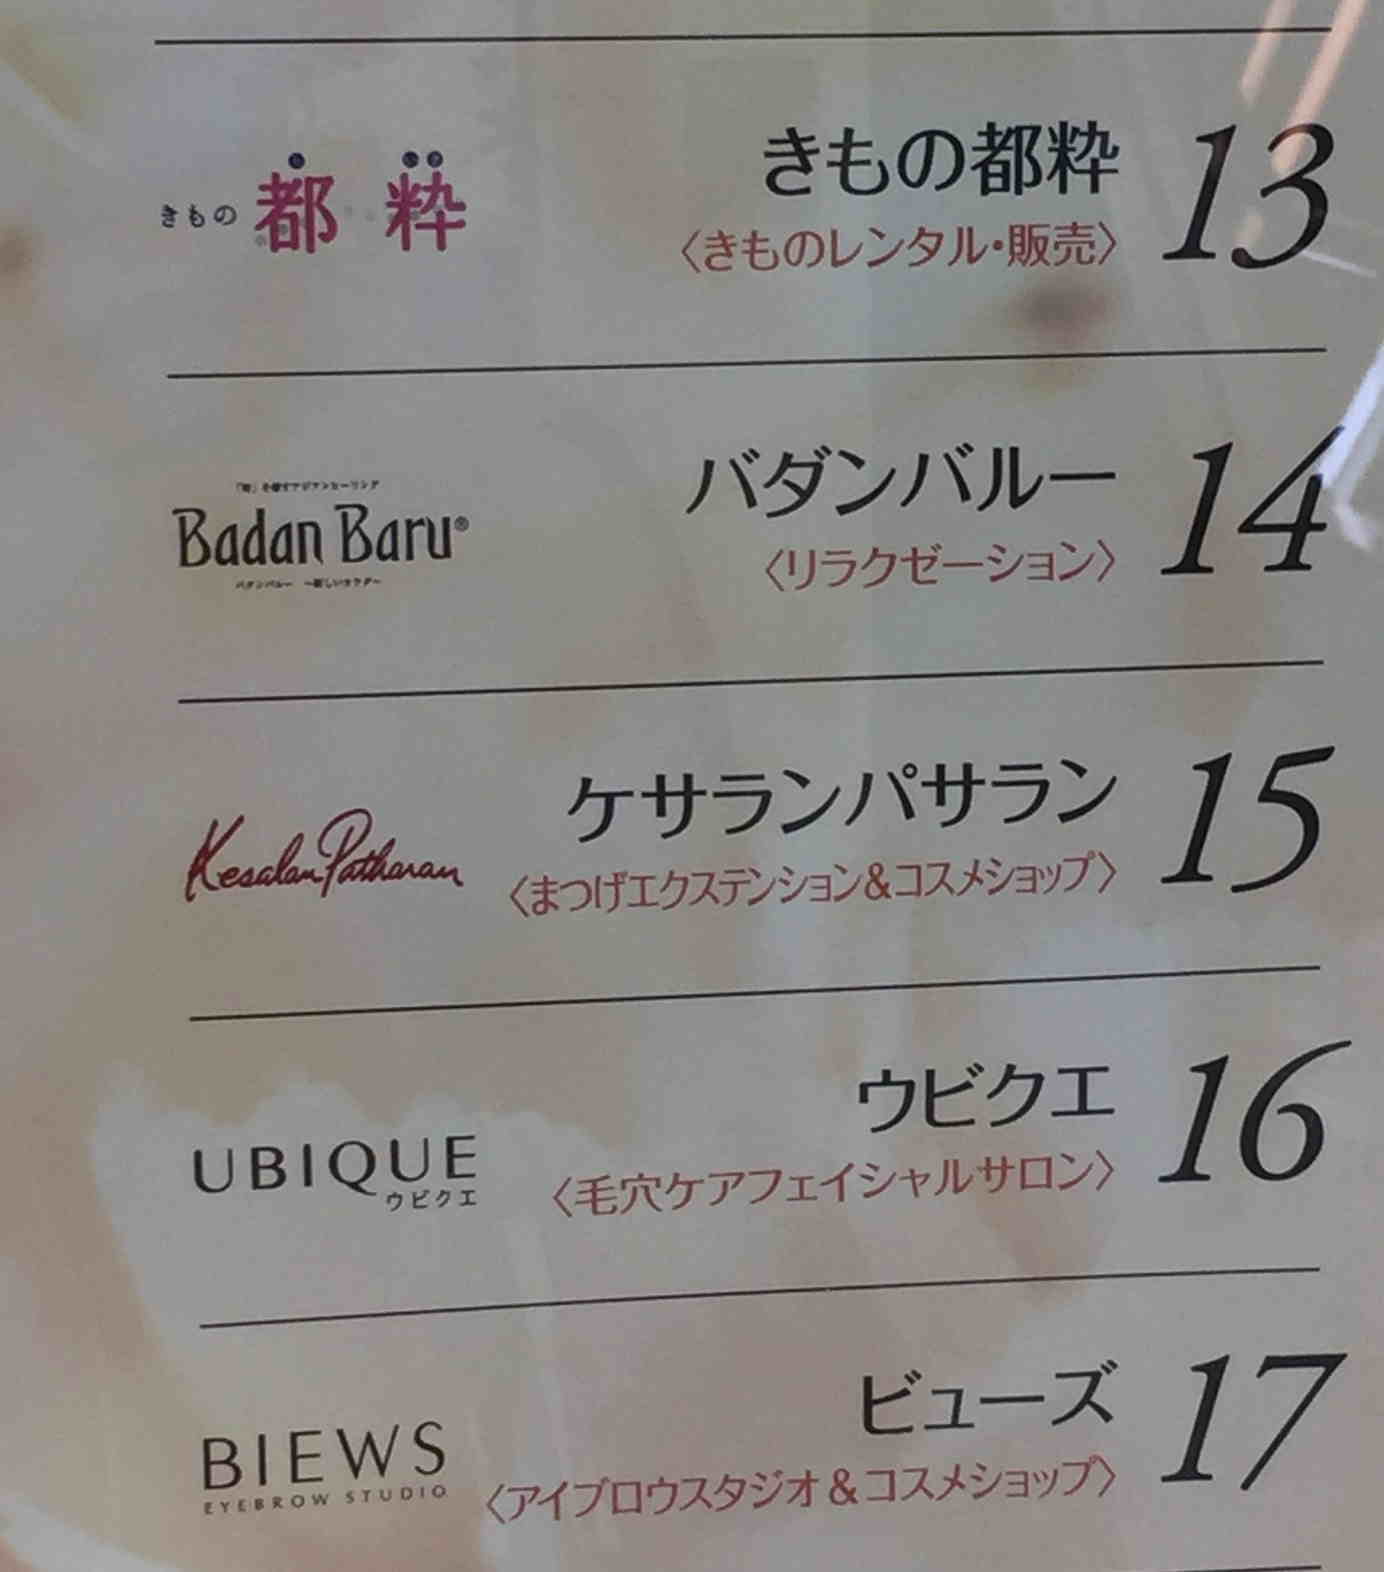 きもの 都粋
きもの都粋
〈きものレンタル・販売〉
13
Badan Baru®
バダンバルー
〈リラクゼーション〉
14
Kesalan Patharan
ケサランパサラン
〈まつげエクステンション&コスメショップ〉
15
UBIQUE
ウビクエ
ウビクエ
〈毛穴ケアフェイシャルサロン〉
16
BIEWS
EYEBROW STUDIO
ビューズ
〈アイブロウスタジオ&コスメショップ〉
17